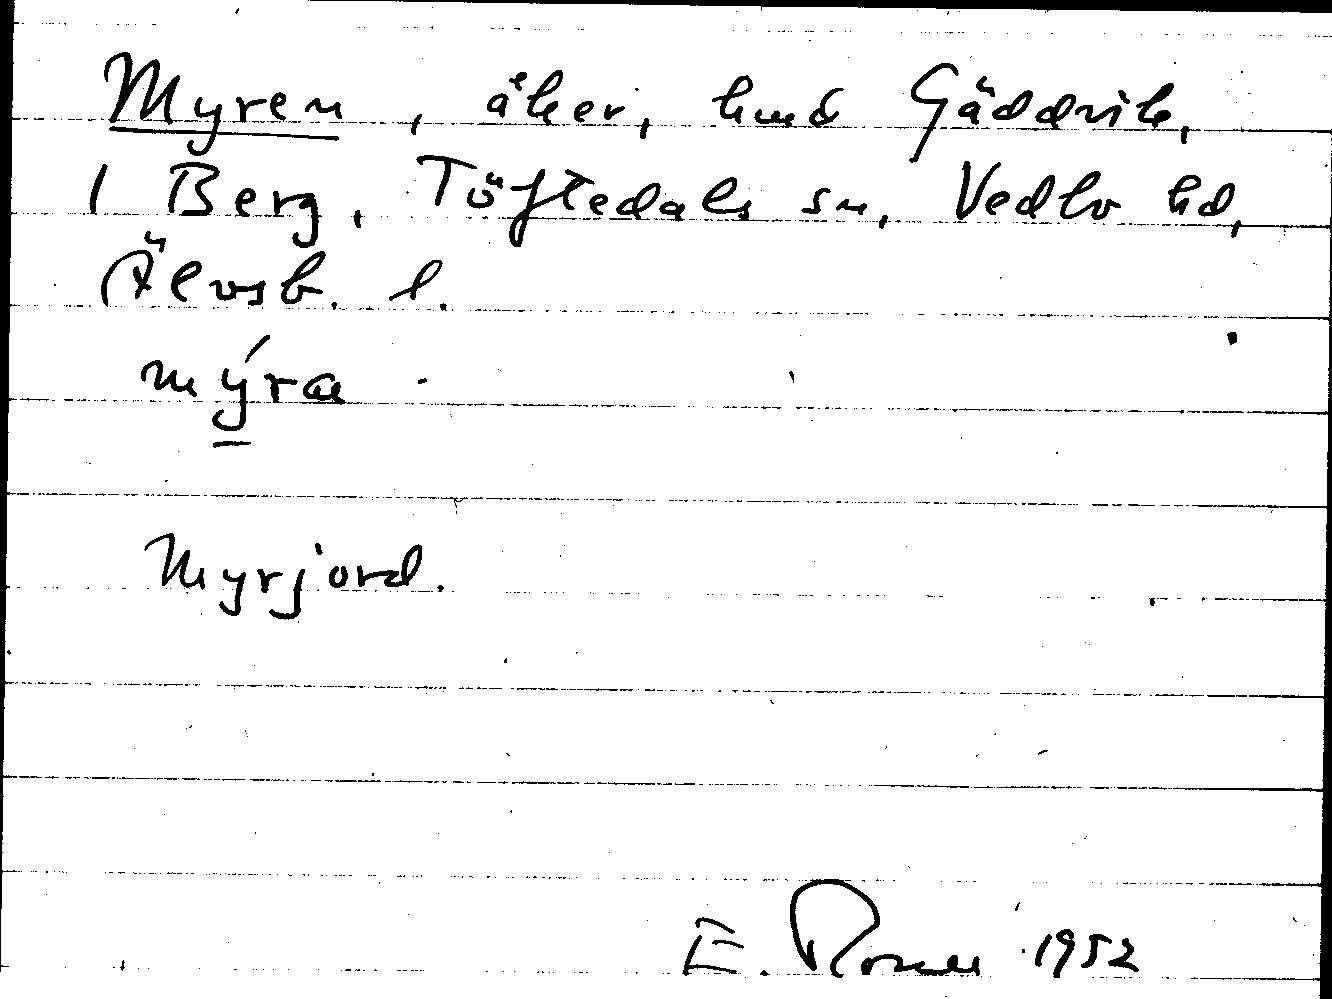 Myren, åker, hmd Gäddvik,
1 Berg, Töftedals sn, Vedbo hd,
Älvsb. l.
mýra
Myrjord.
E. Rosell 1952